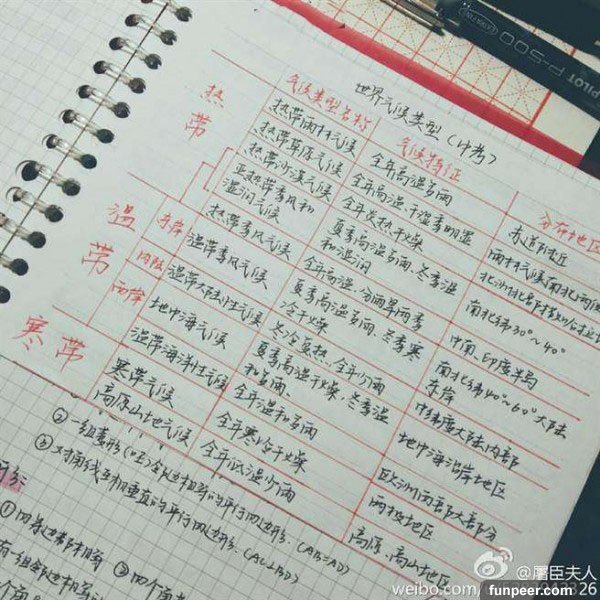 世界气候类型（中考）
气候类型名称 气候特征 分布地区
热带
热带雨林气候 全年高温多雨 赤道附近
热带草原气候 全年高温，干湿季明显
热带沙漠气候 全年炎热干燥
亚热带季风和湿润气候 夏季高温多雨、冬季温和湿润 南北纬30°~40°
热带季风气候 全年高温，分雨旱两季 中南、印度半岛
温带
东岸 温带季风气候 夏季高温多雨、冬季寒冷干燥 南北纬40°~60°大陆东岸
内陆 温带大陆性气候 冬冷夏热，全年少雨 中纬度大陆内部
西岸 地中海气候 夏季高温干燥，冬季温和多雨、 地中海沿岸地区
温带海洋性气候 全年温和多雨 欧洲西部大部分
寒带
寒带气候 全年寒冷干燥 两极地区
高原山地气候 全年低温少雨 高原、高山地区
②一组
③对角线互相垂直的平行四边形：(AC⊥BD)
①四条边都相等
有一组邻边相等
PILOT P-500
@屠臣夫人
weibo.com/
funpeer.com